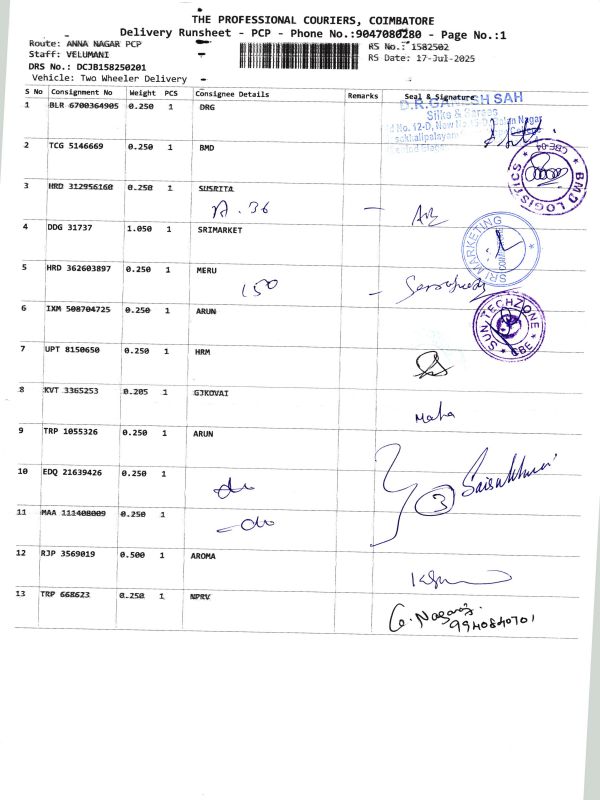 THE PROFESSIONAL COURIERS, COIMBATORE
Delivery Runsheet - PCP - Phone No.:9047080280 - Page No.:1
Route: ANNA NAGAR PCP RS No.: 1582502
Staff: VELUMANI RS Date: 17-Jul-2025
DRS No.: DCJB158250201
Vehicle: Two Wheeler Delivery
S No Consignment No Weight PCS Consignee Details Remarks Seal & Signature
1 BLR 6700364905 0.250 1 DRG
D.R.GANESH SAH
Silks & Sarees
2 TCG 5146669 0.250 1 BMD
BMD LOGISTICS CBE-04
3 HRD 312956160 0.250 1 SUSRITA
A. 36 -
4 DDG 31737 1.050 1 SRIMARKET
SRI MARKETING
5 HRD 362603897 0.250 1 MERU
150 -
6 IXM 508704725 0.250 1 ARUN
SUN TECHZONE * CBE *
7 UPT 8150650 0.250 1 HRM
8 KVT 3365253 0.205 1 GJKOVAI
Maha
9 TRP 1055326 0.250 1 ARUN
10 EDQ 21639426 0.250 1
do 3
11 MAA 111408009 0.250 1
- do
12 RJP 3569019 0.500 1 AROMA
13 TRP 668623 0.250 1 NPRV
G. Nagaraj
9940840701